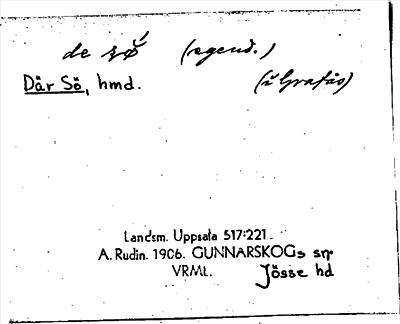 de sø̆ (egend.)
Där Sö, hmd. (i Grafås)
Landsm. Uppsala 517:221.
A. Rudin. 1906. GUNNARSKOGs sn
VRML. Jösse hd